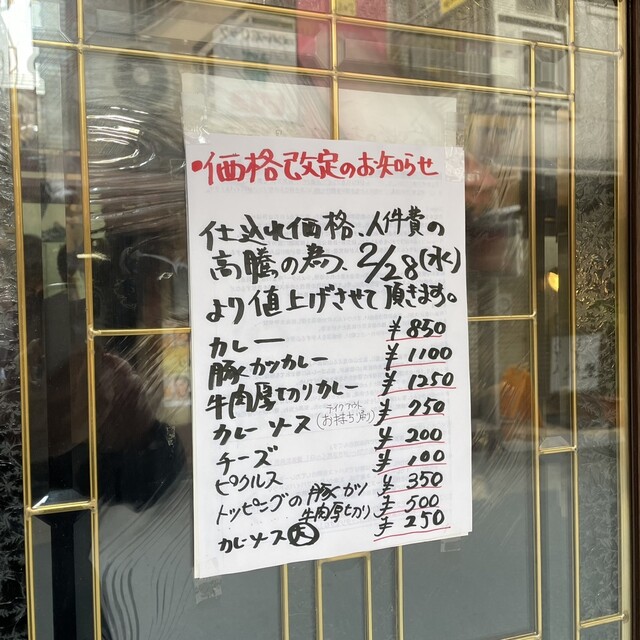 ・価格改定のお知らせ
仕込れ価格、人件費の
高騰の為、2/28(水)
より値上げさせて頂きます。
カレー ¥850
豚カツカレー ¥1100
牛肉厚切りカレー ¥1250
カレーソース テイクアウト(お持ち帰り) ¥750
チーズ ¥200
ピクルス ¥100
トッピングの 豚カツ ¥350
牛肉厚切り ¥500
カレーソース大 ¥250